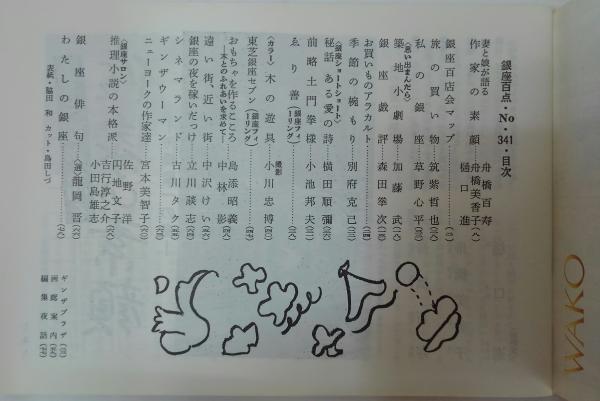 銀座百点・No・341・目次
妻と娘が語る
作家の素顔
舟橋百寿
舟橋美香子
樋口進
(八)
銀座百店会マップ
旅の買い物……筑紫哲也
私の銀座……草野心平
〈思い出まんだら〉
築地小劇場……加藤武
銀座戯評……森田拳次
お買いものアラカルト
季節の椀もり……別府克己
〈銀座ショートショート〉
秘話 ある愛の詩……横田順彌
前略土門拳様……小池邦夫
ゑり善〈銀座フィーリング〉
〈カラー〉木の遊具……撮影 小川忠博
東芝銀座セブン〈銀座フィーリング〉
おもちゃを作るこころ
―木とのふれあいを求めて―
島添昭義
中林影
遠い街近い街……中沢けい
銀座の夜を稼いだっけ……立川談志
シネマランド……古川タク
ギンザウーマン
ニューヨークの作家達……宮本美智子
〈銀座サロン〉
推理小説の本格派
佐野洋
円地文子
吉行淳之介
小田島雄志
銀座俳句……〈選〉龍岡晋
わたしの銀座
表紙・脇田和 カット・島田しづ
ギンザプラザ
画廊案内
編集夜話
WAKO